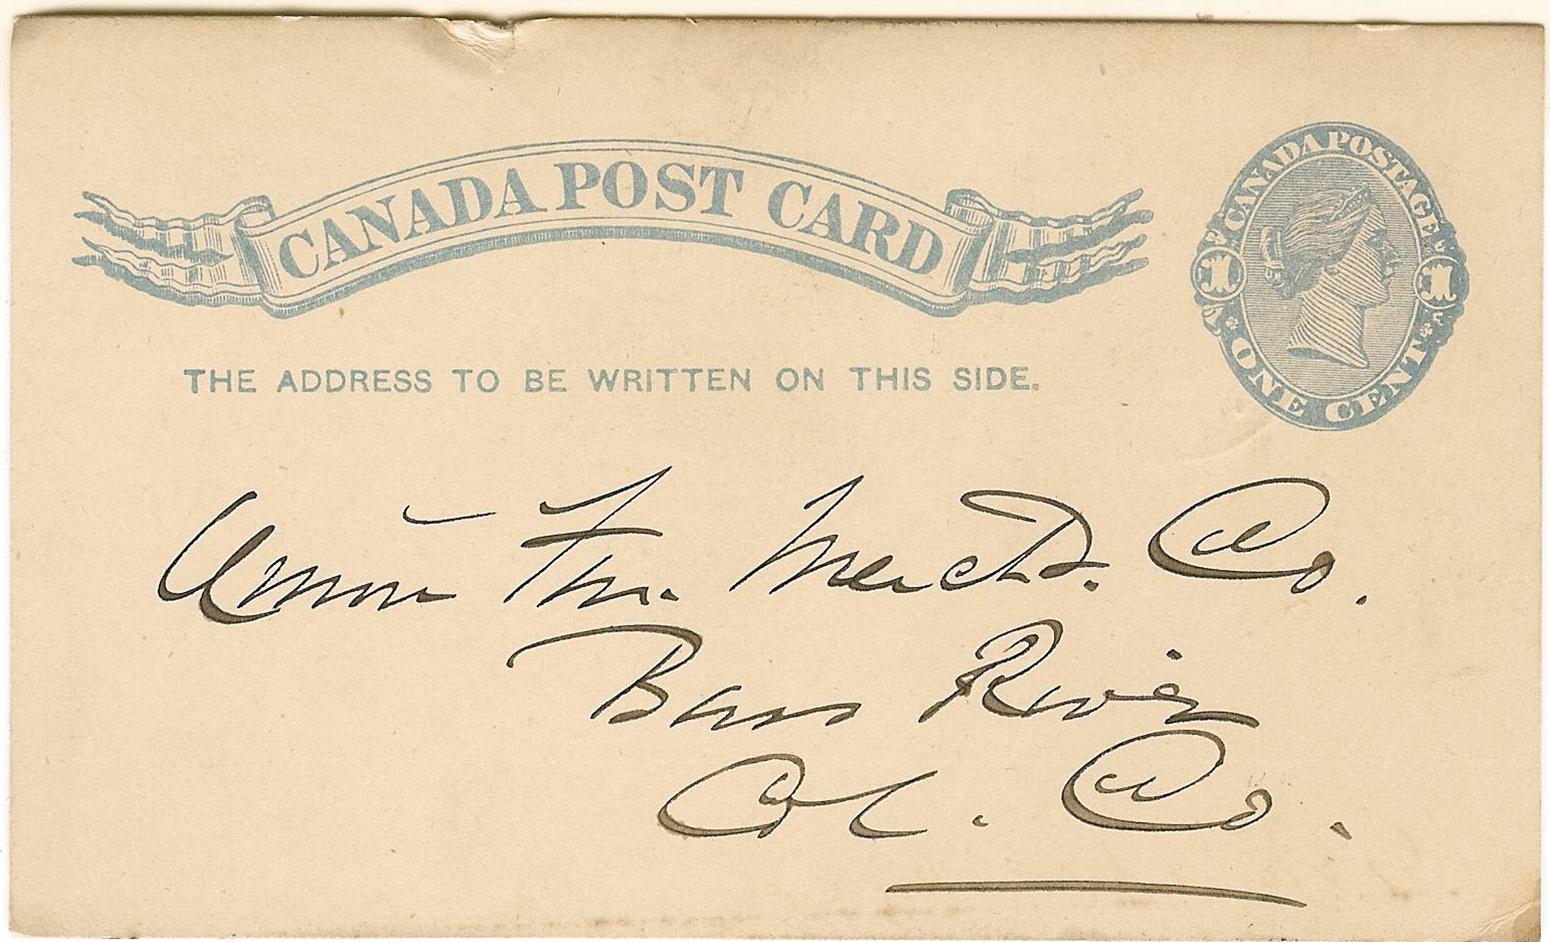 CANADA POST CARD
CANADA POSTAGE
1 1
ONE CENT
THE ADDRESS TO BE WRITTEN ON THIS SIDE.
Union Fur. Mercht. Co.
Bass River
Col. Co.